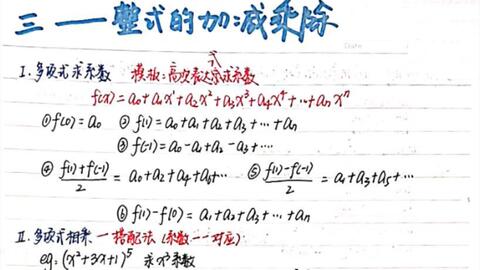 三 —— 整式的加减乘除
Date
I. 多项式求系数 模板:高次表达式求系数
f(x)=a₀+a₁x¹+a₂x²+a₃x³+a₄x⁴+…+aₙxⁿ
①f(0)=a₀ ② f(1)=a₀+a₁+a₂+a₃+…+aₙ
③ f(-1)=a₀-a₁+a₂-a₃+…
④ f(1)+f(-1)/2 = a₀+a₂+a₄+a₆+… ⑤ f(1)-f(-1)/2 = a₁+a₃+a₅+…
⑥ f(1)-f(0)=a₁+a₂+a₃+…+aₙ
II. 多项式相乘 — 搭配法 (系数一一对应)
eg: (x²+3x+1)⁵ 求x³系数